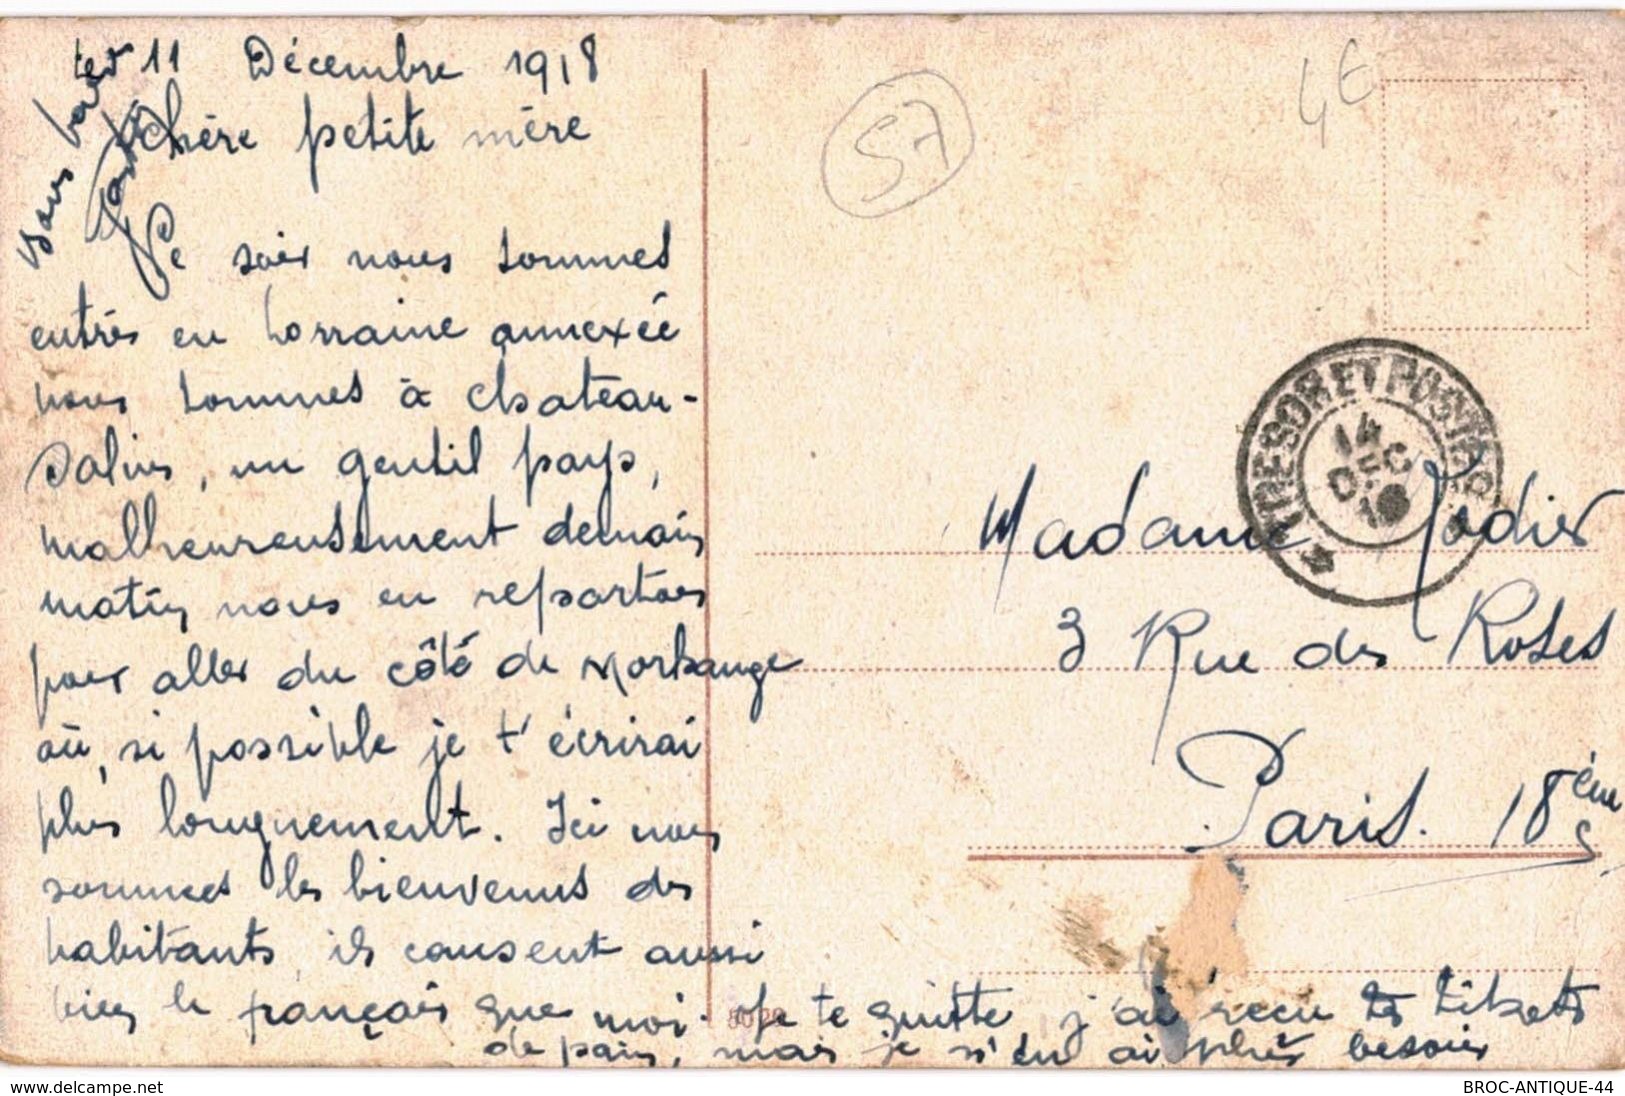 11 Décembre 1918
Chère petite mère
Ce soir nous sommes
entrés en Lorraine annexée
nous sommes à Chateau-
Salins, un gentil pays,
malheureusement demain
matin nous en repartons
pour aller du côté de Morhange
où, si possible je t'écrirai
plus longuement. Ici nous
sommes les bienvenus des
habitants, ils causent aussi
bien le français que moi. Je te quitte j'ai reçu tes tikets
de pain, mais je n'en ai plus besoin
Bons baisers
57
4E
TRESOR ET POSTES
14
DEC
18
Madame Rodier
3 Rue des Roses
Paris. 18ème
delcampe.net
BROC-ANTIQUE-44